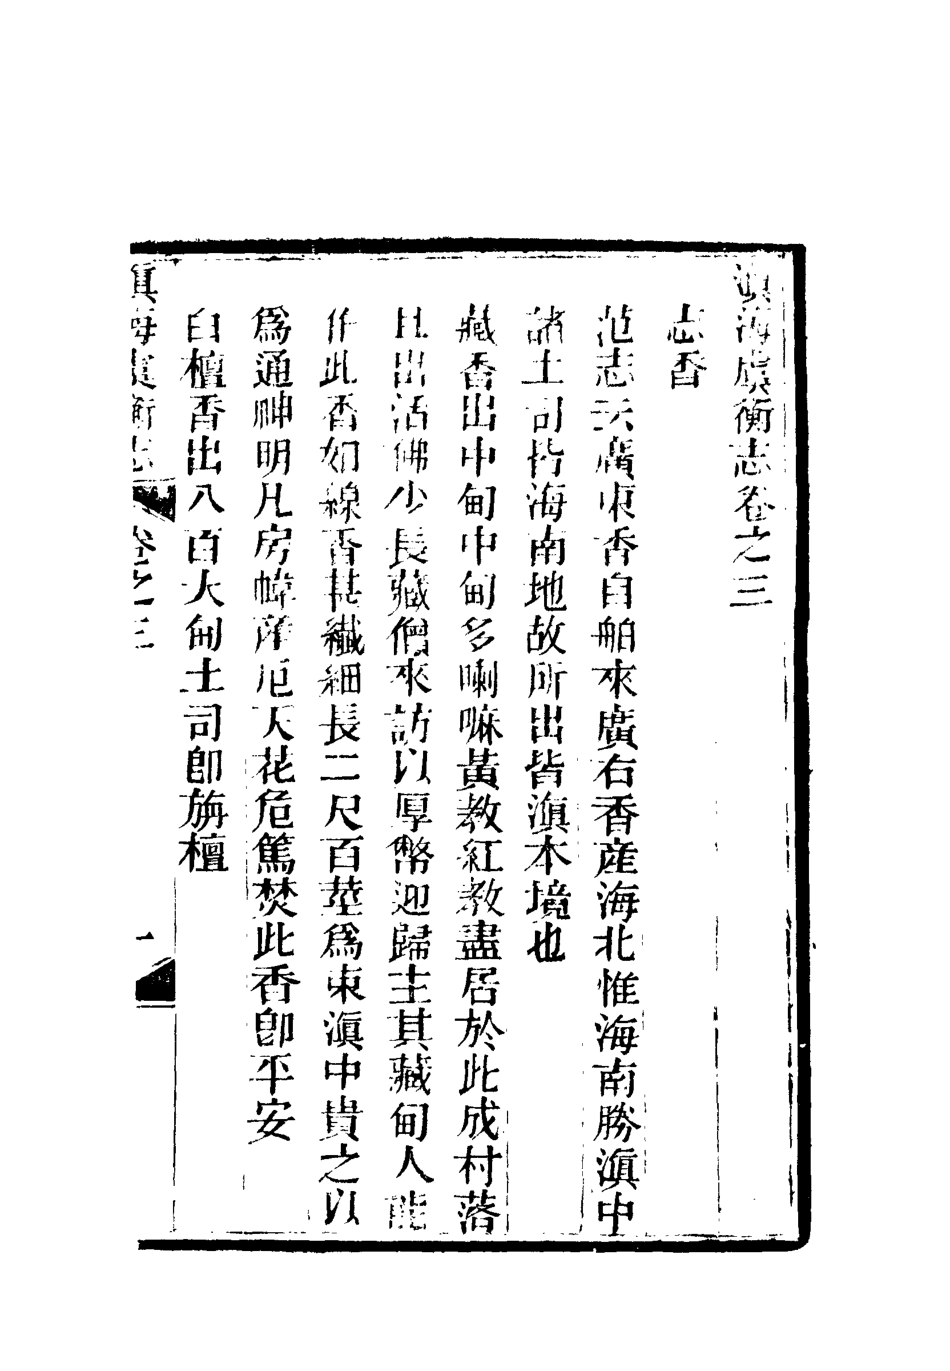 滇海虞衡志卷之三
志香
范志云廣東香自舶來廣右香產海北惟海南勝滇中
諸土司皆海南地故所出皆滇本境也
藏香出中甸中甸多喇嘛黃教紅教盡居於此成村落
且出活佛少長藏僧來訪以厚幣迎歸主其藏甸人能
作此香如線香其纖細長二尺百莖爲束滇中貴之以
爲通神明凡房幃產厄天花危篤焚此香卽平安
白檀香出八百大甸土司卽旃檀
滇海虞衡志 卷之三 一